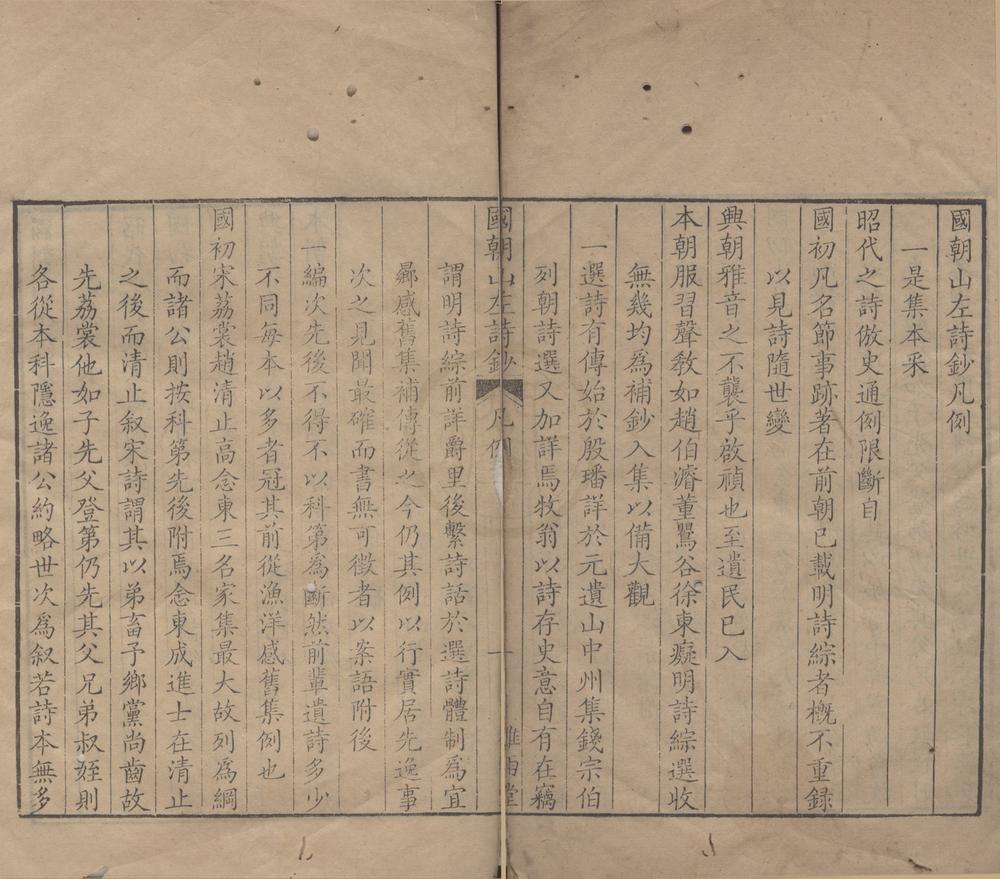 國朝山左詩鈔凡例
一是集本釆
昭代之詩倣史通例限斷自
國初凡名節事跡著在前朝已載明詩綜者槪不重録
以見詩隨世變
興朝雅音之不襲乎啟禎也至遺民已入
本朝服習聲敎如趙伯濬董鳬谷徐東癡明詩綜選收
無幾均爲補鈔入集以備大觀
一選詩有傳始於殷璠詳於元遺山中州集錢宗伯
列朝詩選又加詳焉牧翁以詩存史意自有在竊
國朝山左詩鈔 凡例 一 雅雨堂
謂明詩綜前詳爵里後繫詩話於選詩體制爲宜
曏感舊集補傳從之今仍其例以行實居先逸事
次之見聞最確而書無可徵者以案語附後
一編次先後不得不以科第爲斷然前輩遺詩多少
不同每本以多者冠其前從漁洋感舊集例也
國初宋荔裳趙清止高念東三名家集最大故列爲綱
而諸公則按科第先後附焉念東成進士在清止
之後而清止叙宋詩謂其以弟畜予鄉黨尚齒故
先荔裳他如子先父登第仍先其父兄弟叔姪則
各從本科隱逸諸公約略世次爲叙若詩本無多